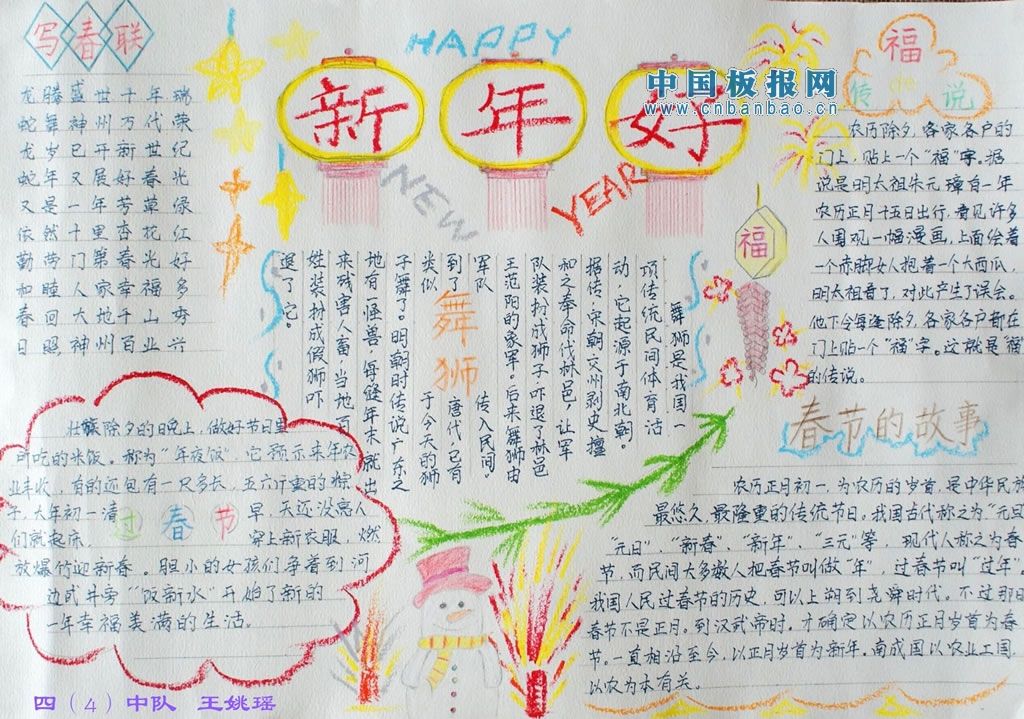 写春联
龙腾盛世千年瑞
蛇舞神州万代荣
龙岁已开新世纪
蛇年又展好春光
又是一年芳草绿
依然十里杏花红
勤劳门第春光好
和睦人家幸福多
春回大地千山秀
日照神州百业兴
HAPPY
新年好
NEW
YEAR
中国板报网
www.cnbanbao.cn
福
传说
农历除夕，各家各户的
门上，贴上一个“福”字。据
说是明太祖朱元璋自一年
农历正月十五日出行，看见许多
人围观一幅漫画，上面绘着
一个赤脚女人抱着一个大西瓜，
明太祖看了，对此产生了误会。
他下令每逢除夕，各家各户都在
门上贴一个“福”字。这就是“福”
的传说。
福
舞狮
舞狮是我国一
项传统民间体育活
动，它起源于南北朝。
据传，宋朝交州剥史擅
和之奉命伐林邑，让军
队装扮成狮子吓退了林邑
王范阳的象军。后来舞狮由
军队传入民间。
到了唐代已有
类似于今天的狮
子舞了。明朝时传说广东之
地有一怪兽，每缝年末就出
来残害人畜，当地百
姓装扮成假狮吓
退了它。
过春节
壮族除夕的日晚上，做好节日里
可吃的米饭。称为“年夜饭”它预示来年农
业丰收，有的还包有一尺多长，五六斤重的粽
子，大年初一清早，天还没亮人
们就起床，穿上新衣服，燃
放爆竹迎新春。胆小的女孩们争着到河
边或井旁“饭新水”开始了新的
一年幸福美满的生活。
春节的故事
农历正月初一，为农历的岁首，是中华民族
最悠久，最隆重的传统节日。我国古代称之为“元旦”
“元日”、“新春”、“新年”、“三元”等，现代人称之为春
节，而民间大多数人把春节叫做“年”，过春节叫“过年”。
我国人民过春节的历史，可以上朔到尧舜时代。不过那时
春节不是正月。到汉武帝时，才确定以农历正月岁首为春
节。一直相沿至今，以正月岁首为新年。南成国以农业工国，
以农为本有关。
四（4）中队 王姚瑶